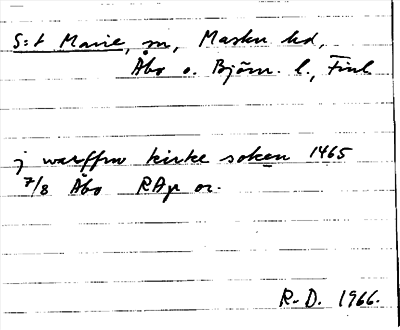 S:t Marie, sn, Masku hd,
Åbo o. Björn. l., Finl.
j warffru kirke soken 1465
7/8 Åbo RAp or.
R-D. 1966.